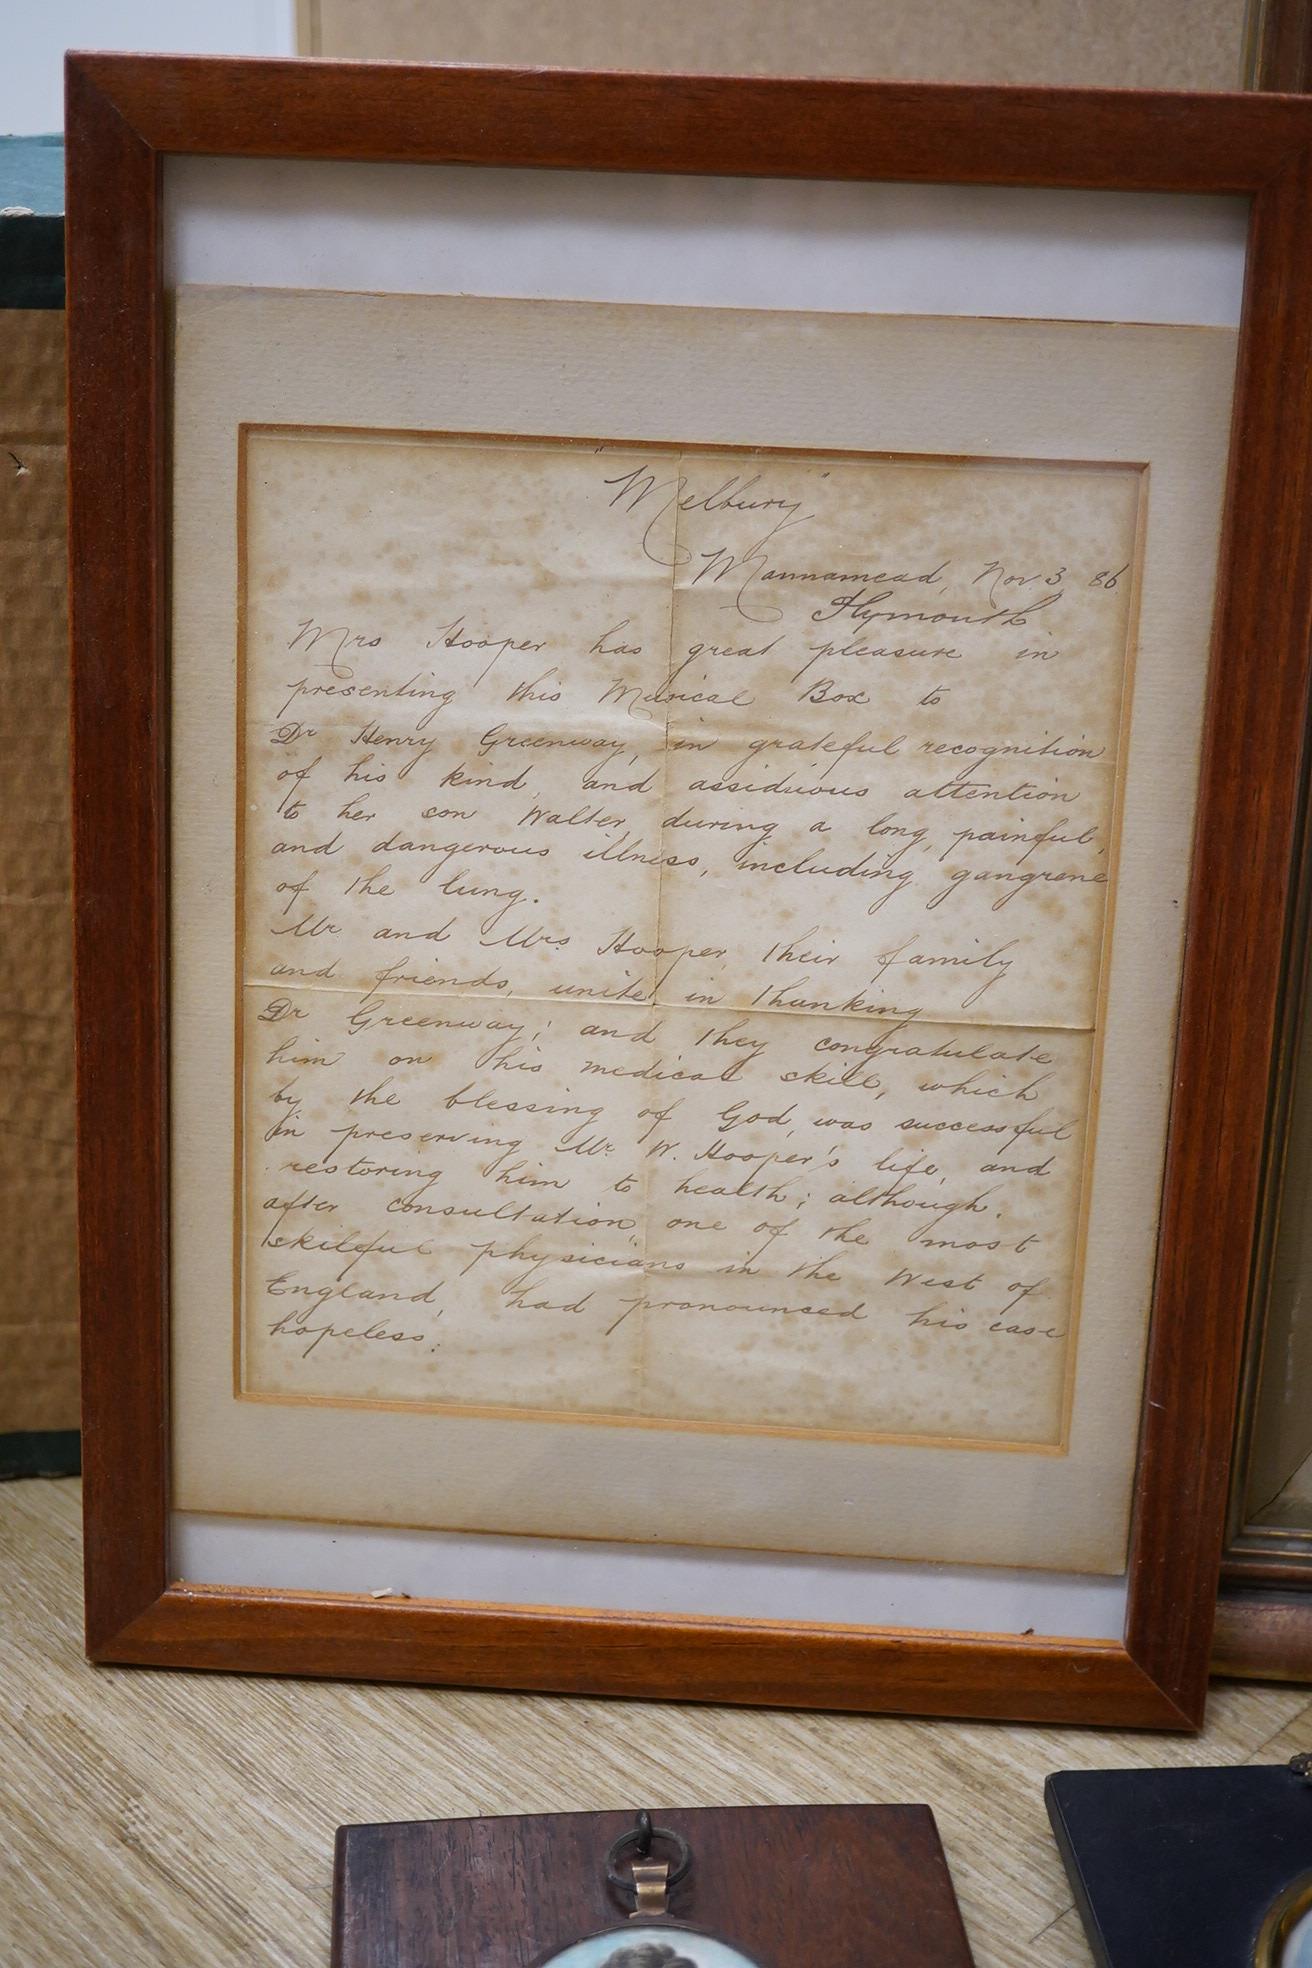 "Melbury"
Mannamead, Nov 3 86
Plymouth
Mrs Hooper has great pleasure in
presenting this Musical Box to
Dr Henry Greenway, in grateful recognition
of his kind, and assiduous attention
to her son Walter, during a long, painful,
and dangerous illness, including gangrene
of the lung.
Mr and Mrs Hooper, their family
and friends, unite in thanking
Dr Greenway; and they congratulate
him on his medical skill, which
by the blessing of God, was successful
in preserving Mr W. Hooper's life, and
restoring him to health; although.
after consultation, one of the most
skilful physicians in the West of
England, had pronounced his case
hopeless.